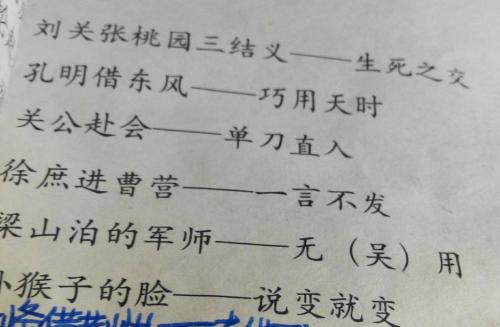 刘关张桃园三结义——生死之交
孔明借东风——巧用天时
关公赴会——单刀直入
徐庶进曹营——一言不发
梁山泊的军师——无（吴）用
小猴子的脸——说变就变
借荆州——